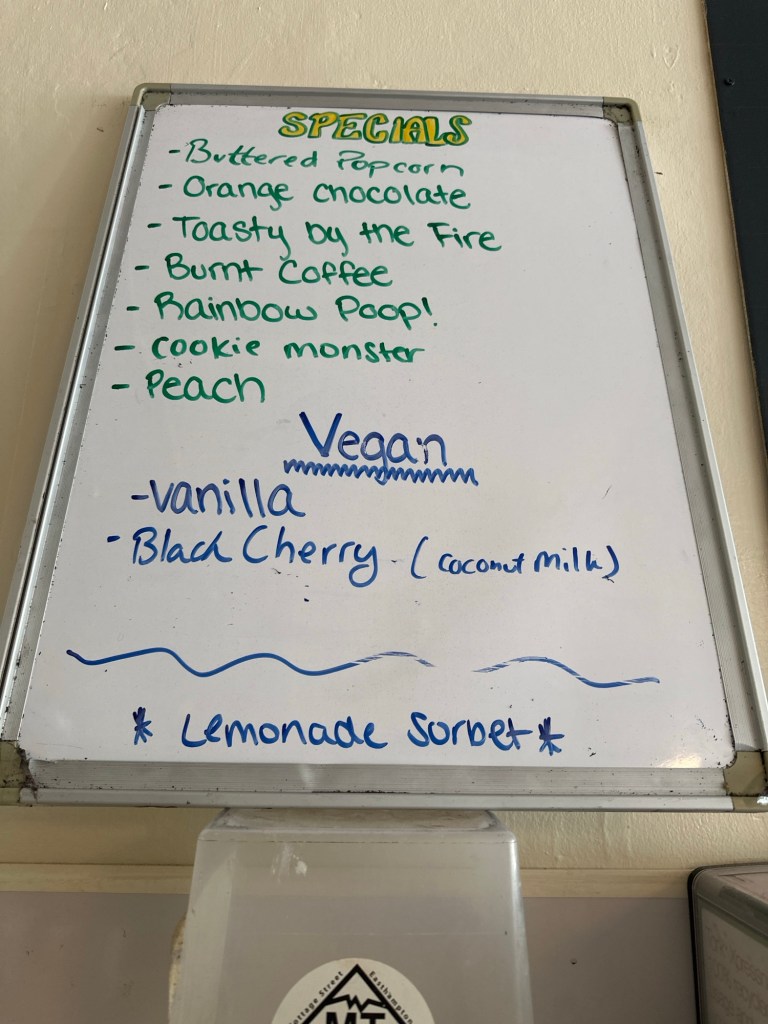 SPECIALS
- Buttered Popcorn
- Orange chocolate
- Toasty by the Fire
- Burnt Coffee
- Rainbow Poop!
- cookie monster
- Peach
Vegan
- Vanilla
- Black Cherry - (coconut milk)
* Lemonade Sorbet *
Cottage Street Easthampton
MT